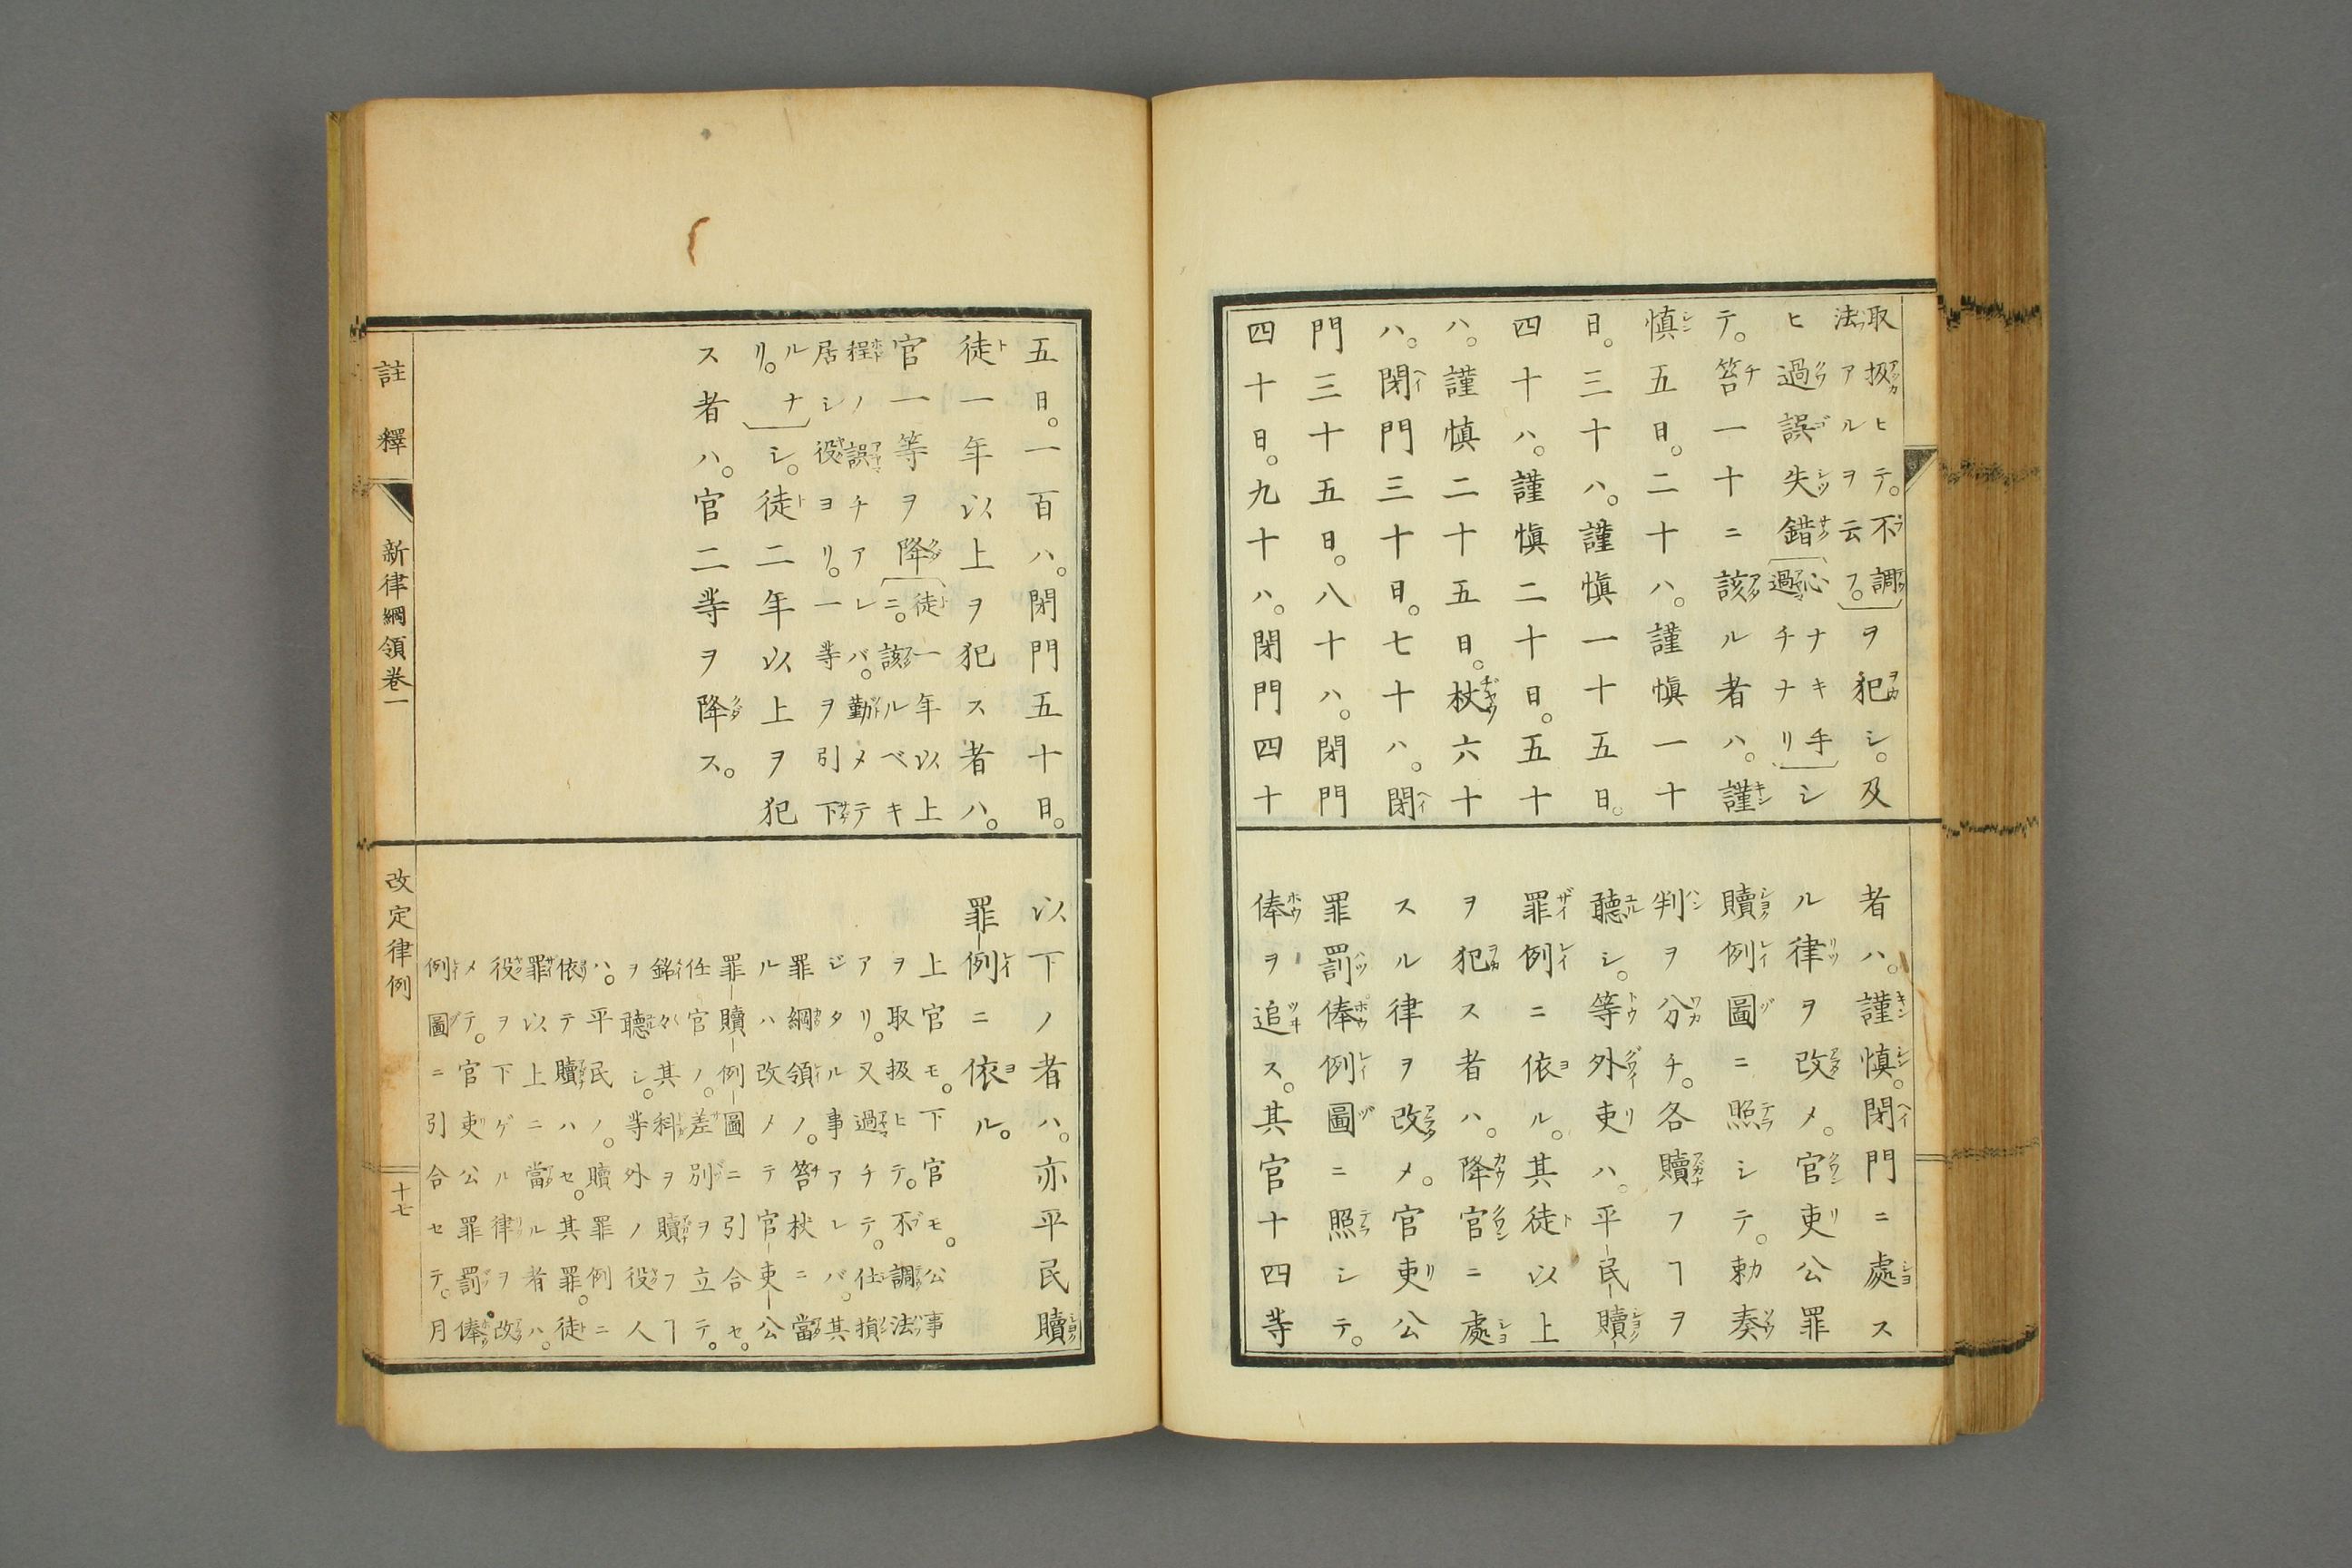 取扱ヒテ。不調
法アルヲ云フ。
ヲ犯シ。及
ヒ過誤失錯
心ナキ手
過チナリ
シ
テ。笞一十ニ該ル者ハ。謹
慎五日。二十ハ。謹慎一十
日。三十ハ。謹慎一十五日。
四十ハ。謹慎二十日。五十
ハ。謹慎二十五日。杖六十
ハ。閉門三十日。七十ハ。閉
門三十五日。八十ハ。閉門
四十日。九十ハ。閉門四十
者ハ。謹慎。閉門ニ處ス
ル律ヲ改メ。官吏公罪
贖例圖ニ照シテ。勅奏
判ヲ分チ。各贖フヿヲ
聽シ。等外吏ハ。平民贖
罪例ニ依ル。其徒以上
ヲ犯ス者ハ。降官ニ處
スル律ヲ改メ。官吏公
罪罰俸例圖ニ照シテ。
俸ヲ追ス。其官十四等
五日。一百ハ。閉門五十日。
徒一年以上ヲ犯ス者ハ。
官一等ヲ降
徒一年以上
ニ。該ルベキ
程ノ誤チアレバ。勤メテ
居シ役ヨリ。一等ヲ引下
ルナ
リ。
シ。徒二年以上ヲ犯
ス者ハ。官二等ヲ降ス。
以下ノ者ハ。亦平民贖
罪例ニ依ル。
上官モ。下官モ。公事
ヲ取扱ヒテ。不調法
アリ。又過チテ。仕損
ジタル事アレバ。其
罪綱領ノ。笞杖ニ當
ルハ改メテ官吏公
罪贖例圖ニ引合セ。
任官ノ。差別ヲ立テ。
銘々其科ヲ贖フヿ
ヲ聽シ。等外ノ役人
ハ。平民ノ。贖罪例ニ
依テ贖ハセ。其罪。徒
罪以上ニ當ル者ハ。
役ヲ下ゲル律ヲ改
メテ。官吏公罪罰俸
例圖ニ引合セテ。月
註釋 新律綱領卷一 改定律例 十七